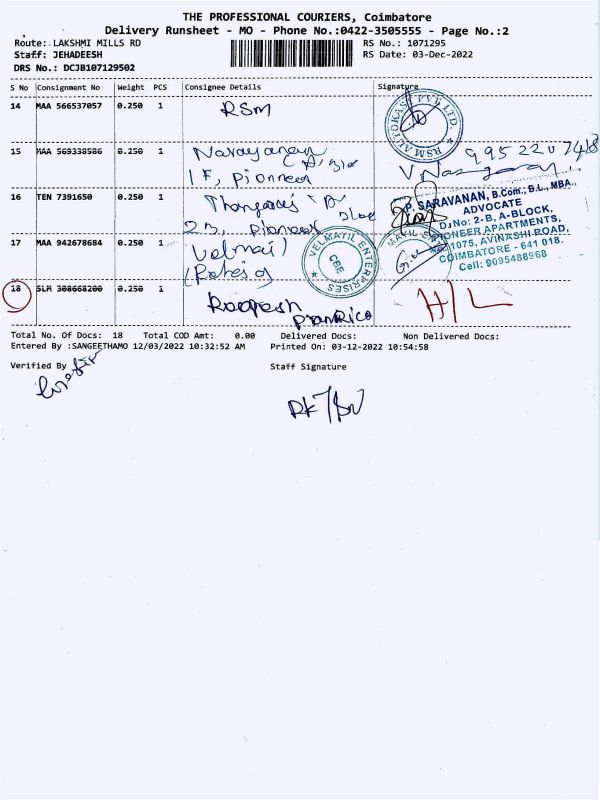 THE PROFESSIONAL COURIERS, Coimbatore
Delivery Runsheet - MO - Phone No.:0422-3505555 - Page No.:2
Route: LAKSHMI MILLS RD RS No.: 1071295
Staff: JEHADEESH RS Date: 03-Dec-2022
DRS No.: DCJB107129502
S No Consignment No Weight PCS Consignee Details Signature
14 MAA 566537057 0.250 1 RSM
RSM AUTOKAST PVT LTD.
15 MAA 569338586 0.250 1 Narayanan 9952207418
1F, Pioneer
16 TEN 7391650 0.250 1 Thangaraj
2B, Pioneer
P. SARAVANAN, B.Com., B.L., MBA.,
ADVOCATE
D.No: 2-B, A-BLOCK,
PIONEER APARTMENTS,
1075, AVINASHI ROAD,
COIMBATORE - 641 018.
Cell: 9095488968
17 MAA 942678684 0.250 1 Velmail
VELMAYIL ENTERPRISES
CBE
18 SLM 308668200 0.250 1 Roopesh
H/L
Total No. Of Docs: 18 Total COD Amt: 0.00 Delivered Docs: Non Delivered Docs:
Entered By :SANGEETHAMO 12/03/2022 10:32:52 AM Printed On: 03-12-2022 10:54:58
Verified By Staff Signature